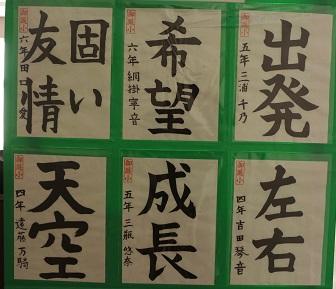 出発
五年 三浦 千乃
希望
六年 網掛 寧音
固い
友情
六年 田口 愛
左右
四年 吉田 琴音
成長
五年 三瓶 悠奈
天空
四年 遠藤 万騎